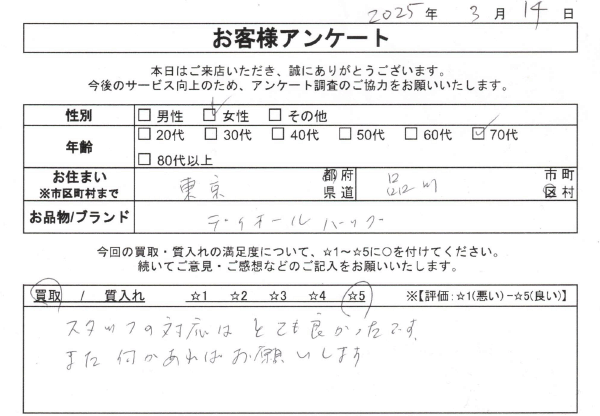 2025年 3月 14日
お客様アンケート
本日はご来店いただき、誠にありがとうございます。
今後のサービス向上のため、アンケート調査のご協力をお願いいたします。
性別 □男性 ☑女性 □その他
年齢 □20代 □30代 □40代 □50代 □60代 ☑70代
□80代以上
お住まい ※市区町村まで 東京 都府県道 品川 市町区村
お品物/ブランド ディオールバッグ
今回の買取・質入れの満足度について、☆1～☆5に○を付けてください。
続いてご意見・ご感想などのご記入をお願いいたします。
買取 / 質入れ ☆1 ☆2 ☆3 ☆4 ☆5 ※【評価:☆1(悪い)-☆5(良い)】
スタッフの対応はとても良かったです。
また何かあればお願いします